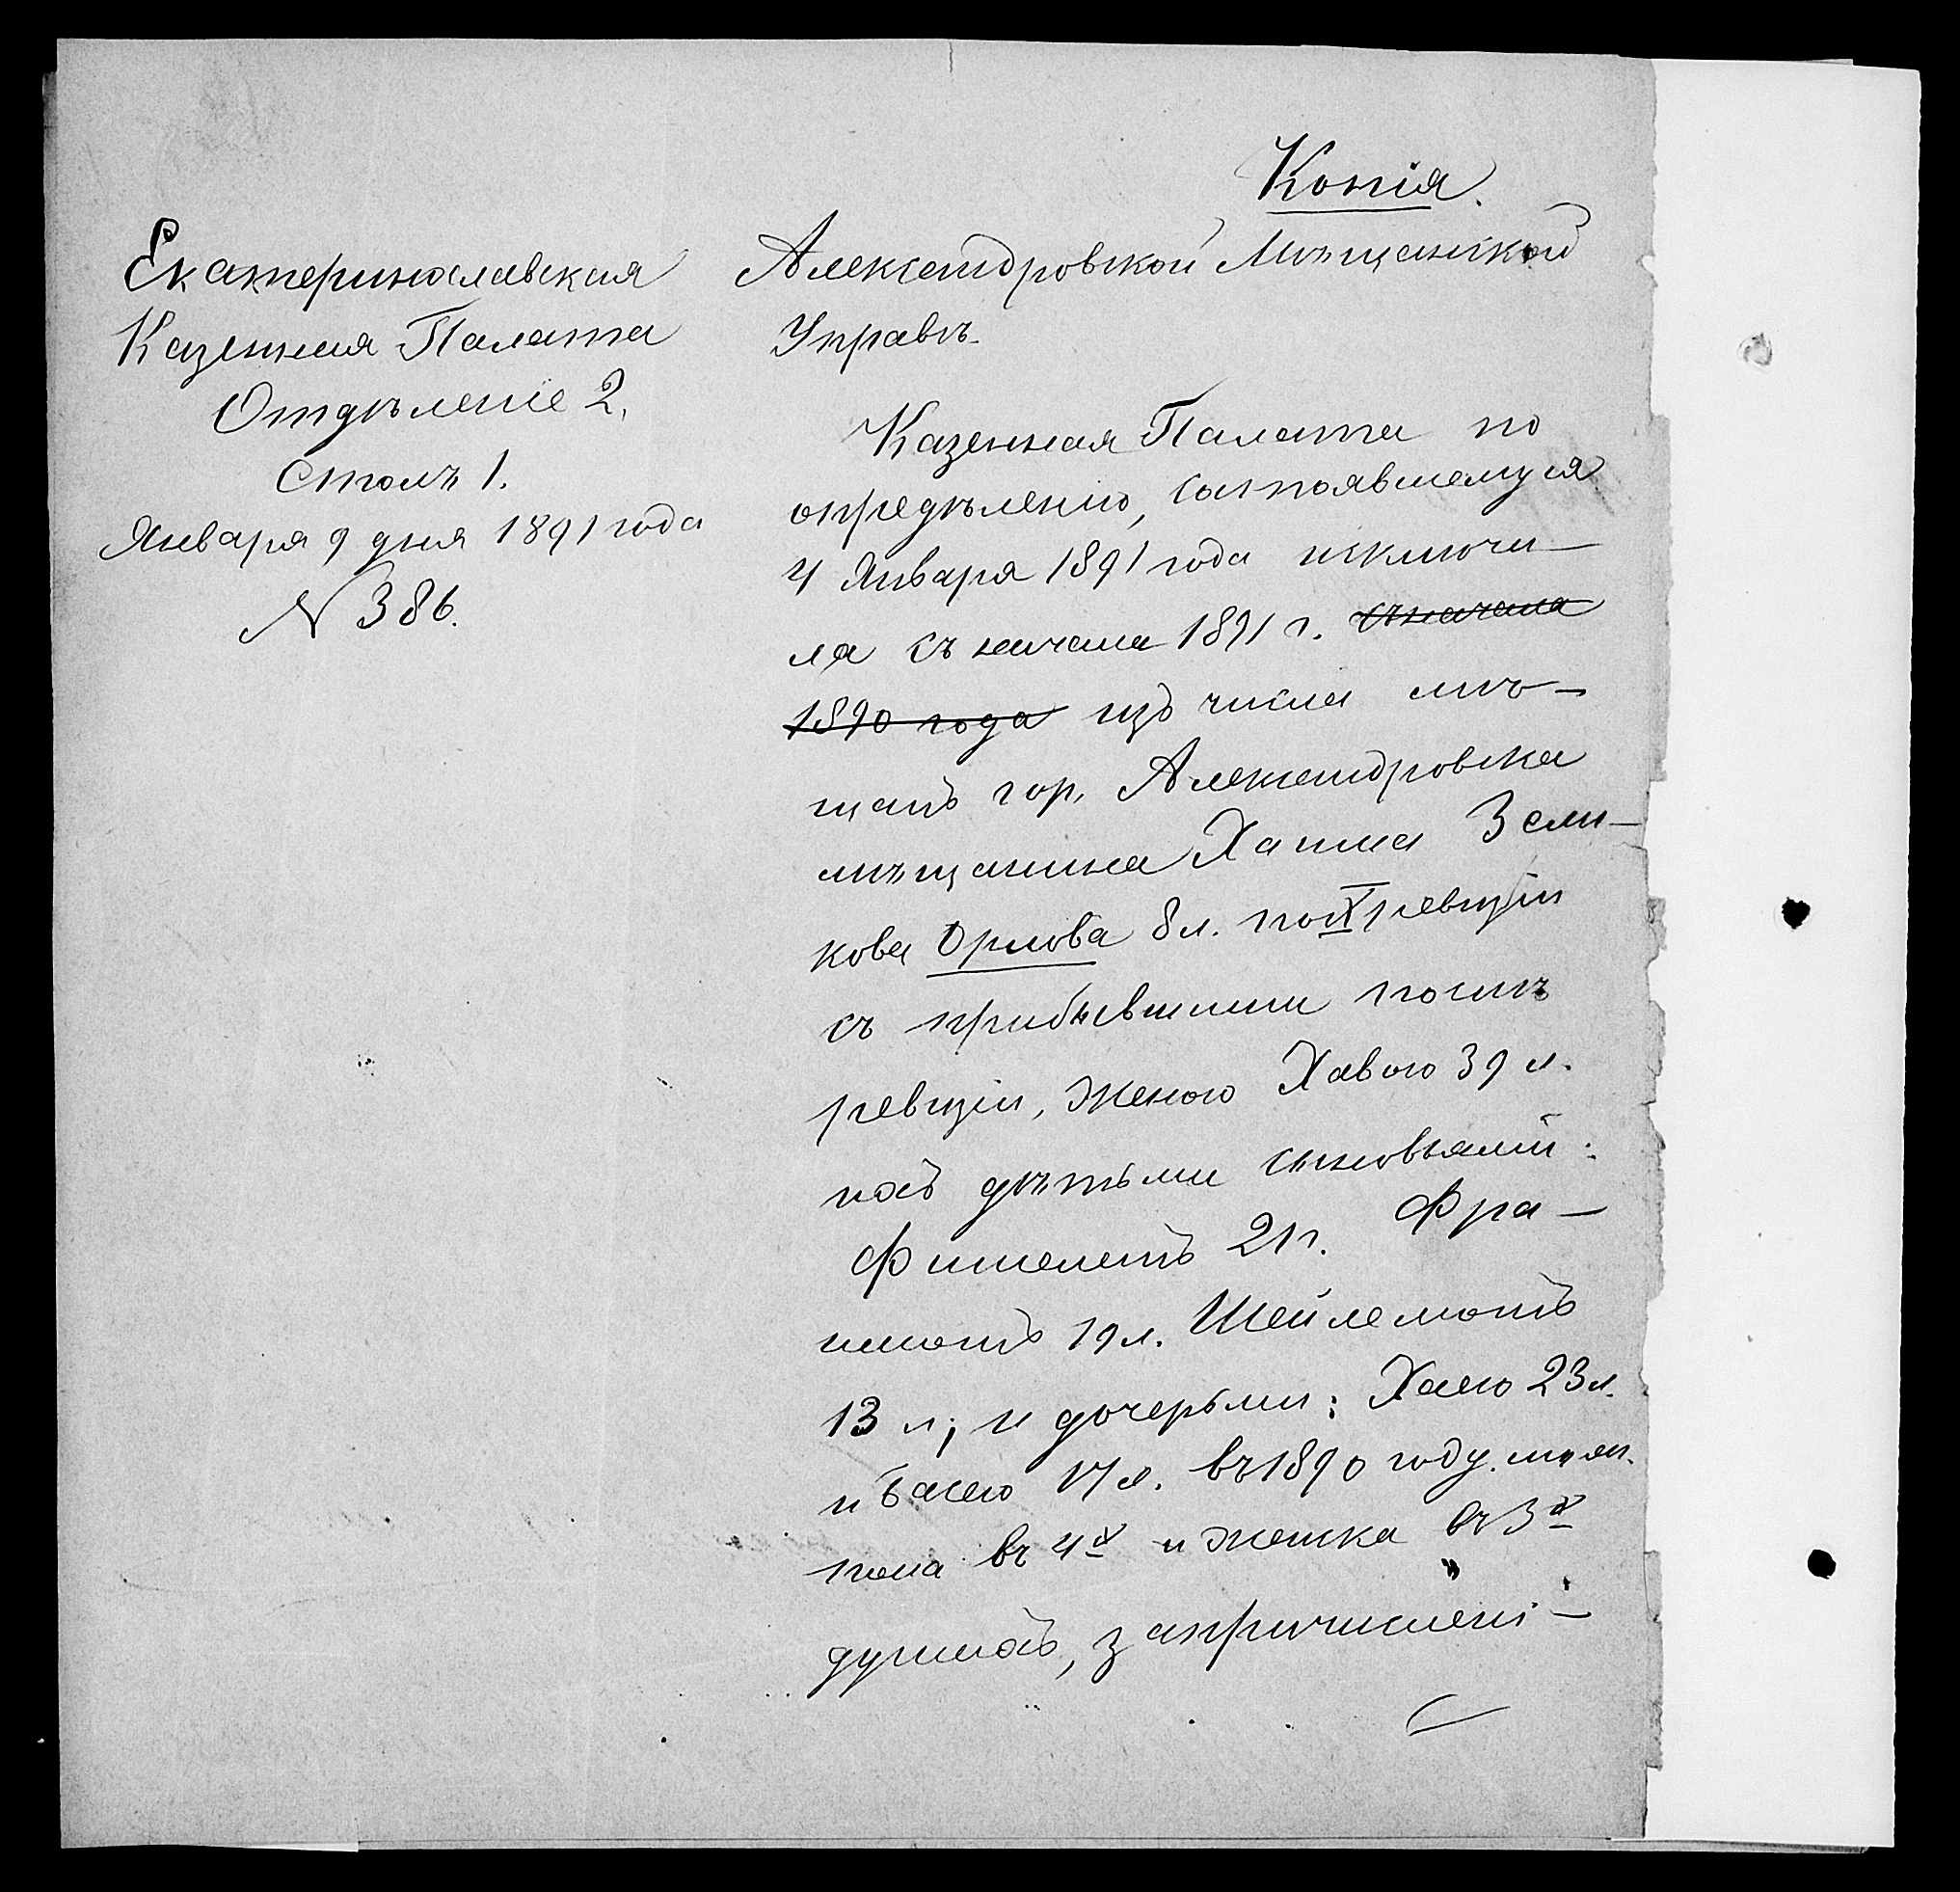 Копія.
Екатеринославская
Казенная Палата
Отдѣленіе 2.
Столъ 1.
Января 9 дня 1891 года
N 386.
Александровской Мѣщанской
Управѣ.
Казенная Палата по
опредѣленію, состоявшемуся
4 Января 1891 года исключи–
ла съ начала 1891 г. съ начала
1890 года изъ числа мѣ–
щанъ гор. Александровска
мѣщанина Хаима Зели–
кова Орлова 8 л. по X ревизіи
съ прибывшими послѣ
ревизіи, женою Хавою 39 л.
ихъ дѣтьми сыновьями:
Фишелемъ 21 г. Фра–
имомъ 19 л. Шейлемомъ
13 л; и дочерьми: Хаею 23 л.
и Басею 17 л. въ 1890 году. муж.
пола въ 4х и женска въ 3х
душахъ, за причислені–